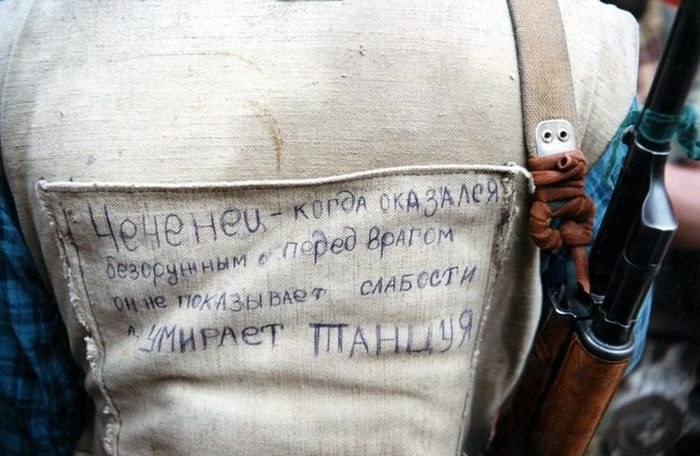 Чеченец - когда оказался
безоружным перед врагом
он не показывает слабости
а умирает танцуя